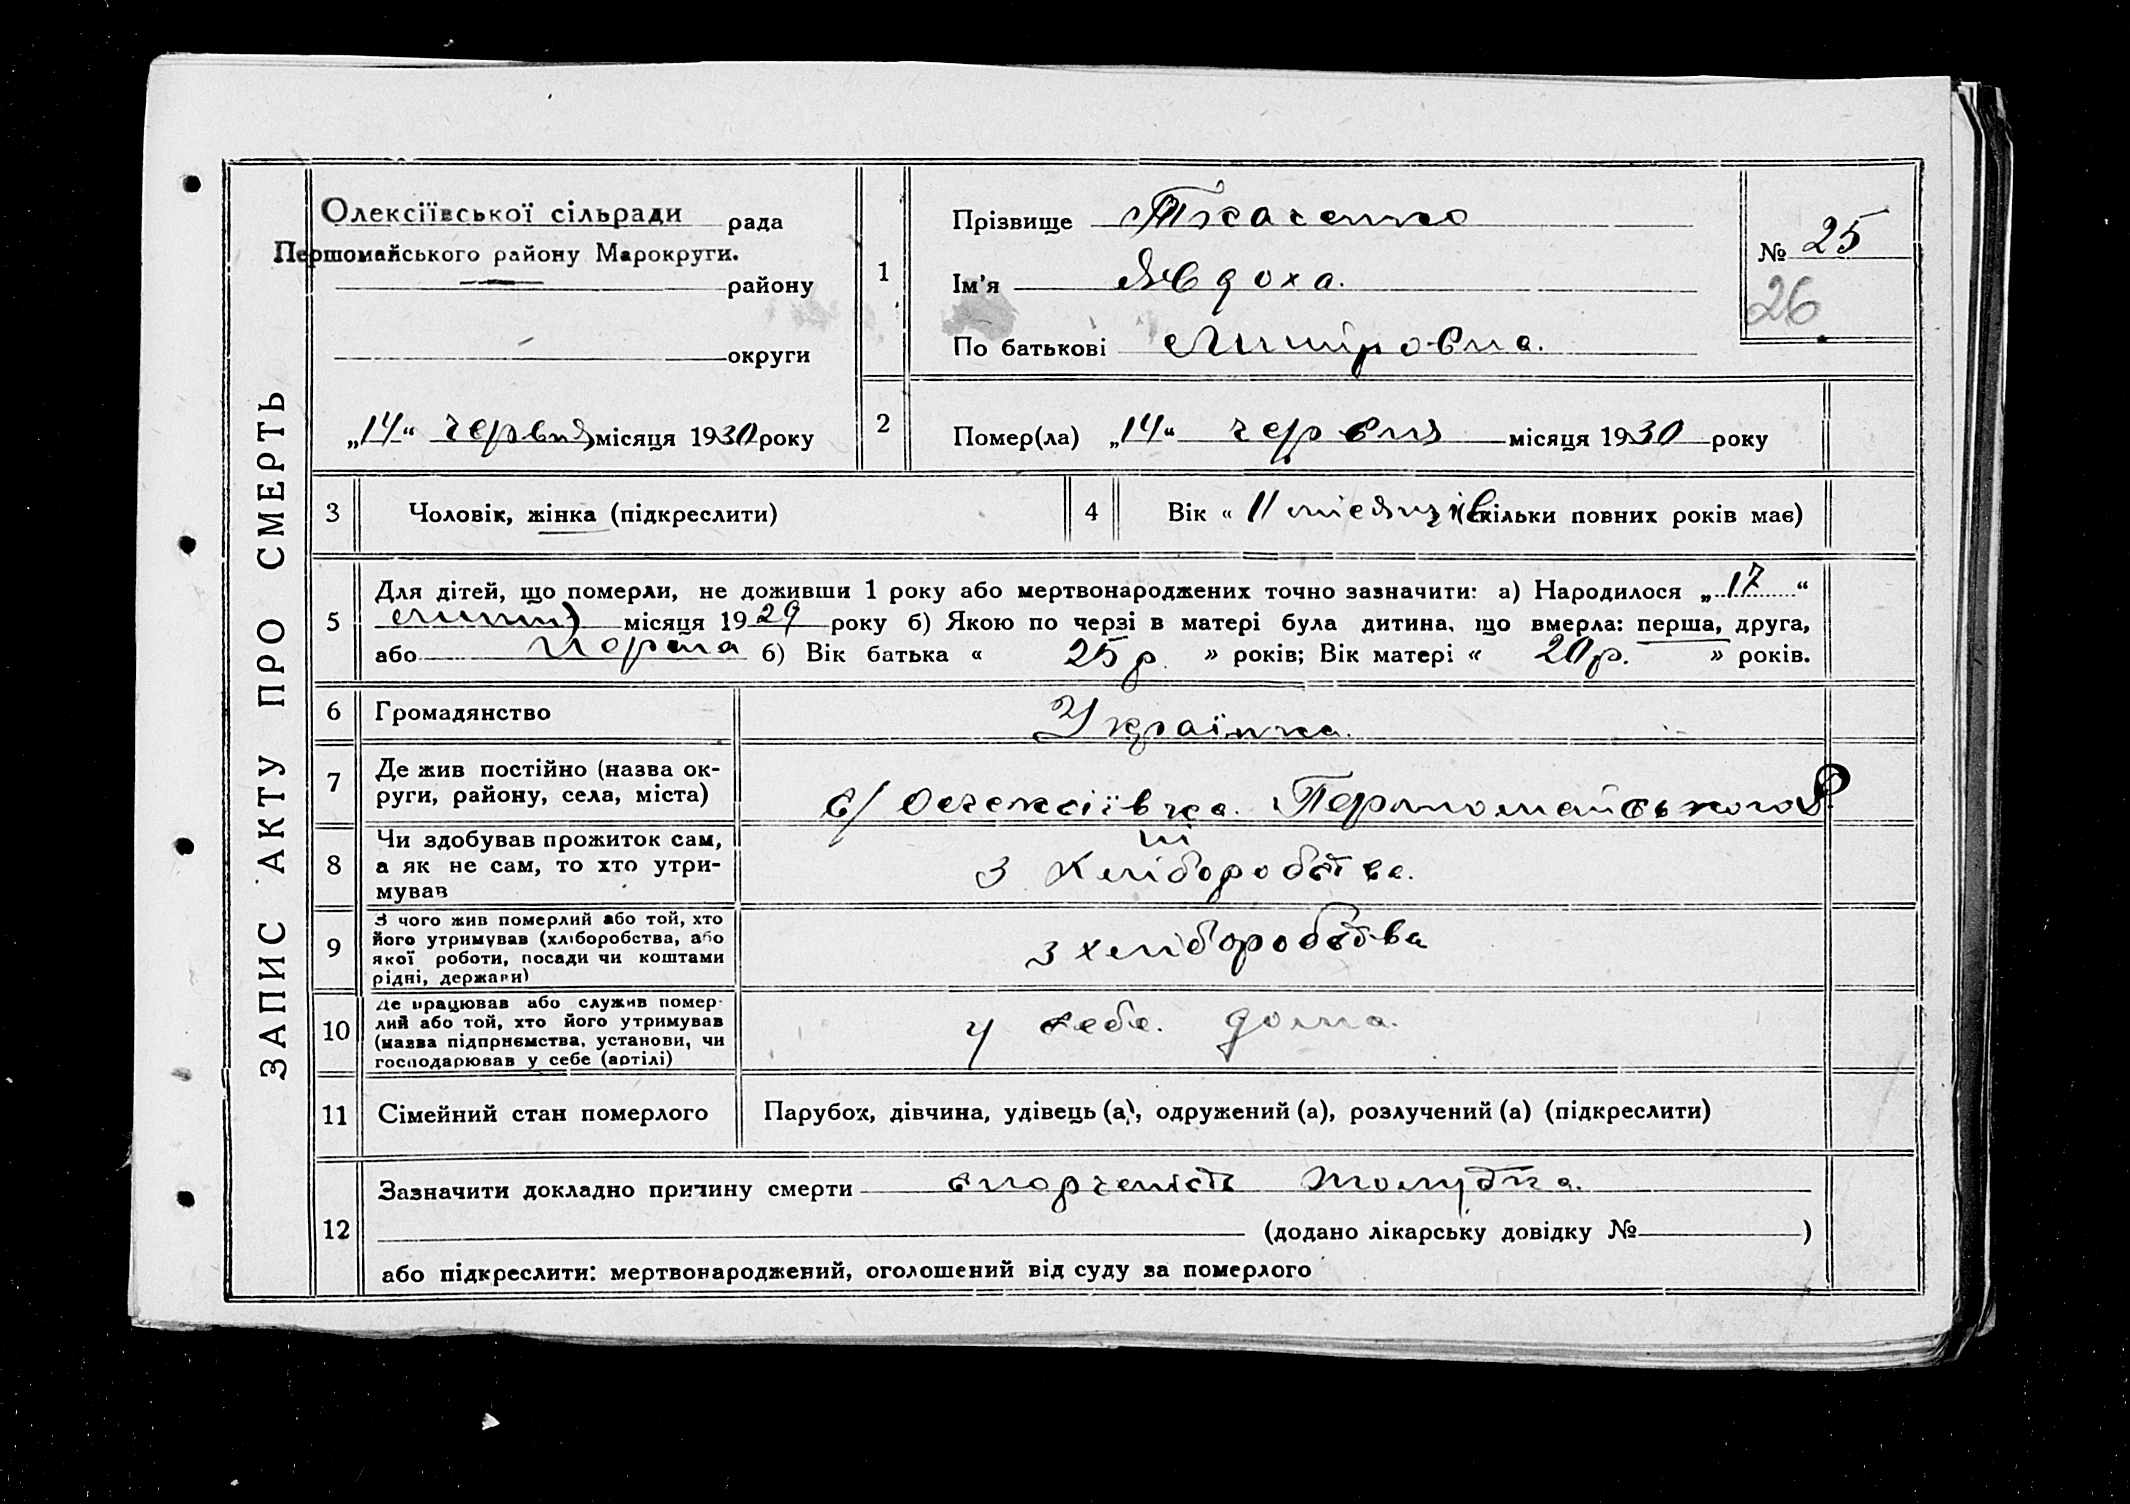 ЗАПИС АКТУ ПРО СМЕРТЬ
Олексіївської сільради рада
Першомайського району Марокруги.
району
округи
„14“ червня місяця 1930 року
1
Прізвище Ткаченко
Ім'я Явдоха.
По батькові
№ 25
26
2
Помер(ла) „14“ червня місяця 1930 року
3 Чоловік, жінка (підкреслити)
4 Вік « 11 місяців (скільки повних років має)
5
Для дітей, що померли, не доживши 1 року або мертвонароджених точно зазначити: а) Народилося „17“
липня місяця 1929 року б) Якою по черзі в матері була дитина, що вмерла: перша, друга,
або перша б) Вік батька « 25 р. » років; Вік матері « 20 р. » років.
6 Громадянство Українка.
7
Де жив постійно (назва ок-
руги, району, села, міста)
с/ Олексіївка. Першомайського Р.
8
Чи здобував прожиток сам,
а як не сам, то хто утри-
мував
з Хліборобства.
9
З чого жив померлий або той, хто
його утримував (хліборобства, або
якої роботи, посади чи коштами
рідні, держави)
з хліборобства
10
Де працював або служив помер-
лий або той, хто його утримував
(назва підприємства, установи, чи
господарював у себе (артілі)
у себе. дома.
11 Сімейний стан померлого Парубок, дівчина, удівець (а), одружений (а), розлучений (а) (підкреслити)
12
Зазначити докладно причину смерти спорченість жолудка.
(додано лікарську довідку № )
або підкреслити: мертвонароджений, оголошений від суду за померлого